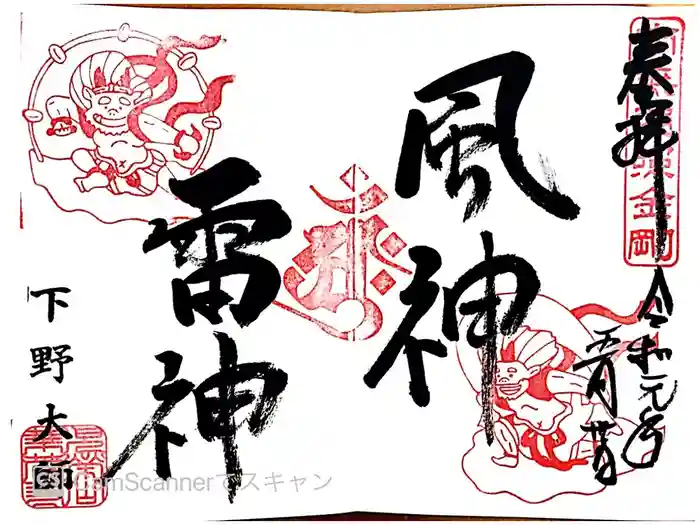 奉拝
令和元年
風神
雷神
下野大師
CamScannerでスキャン